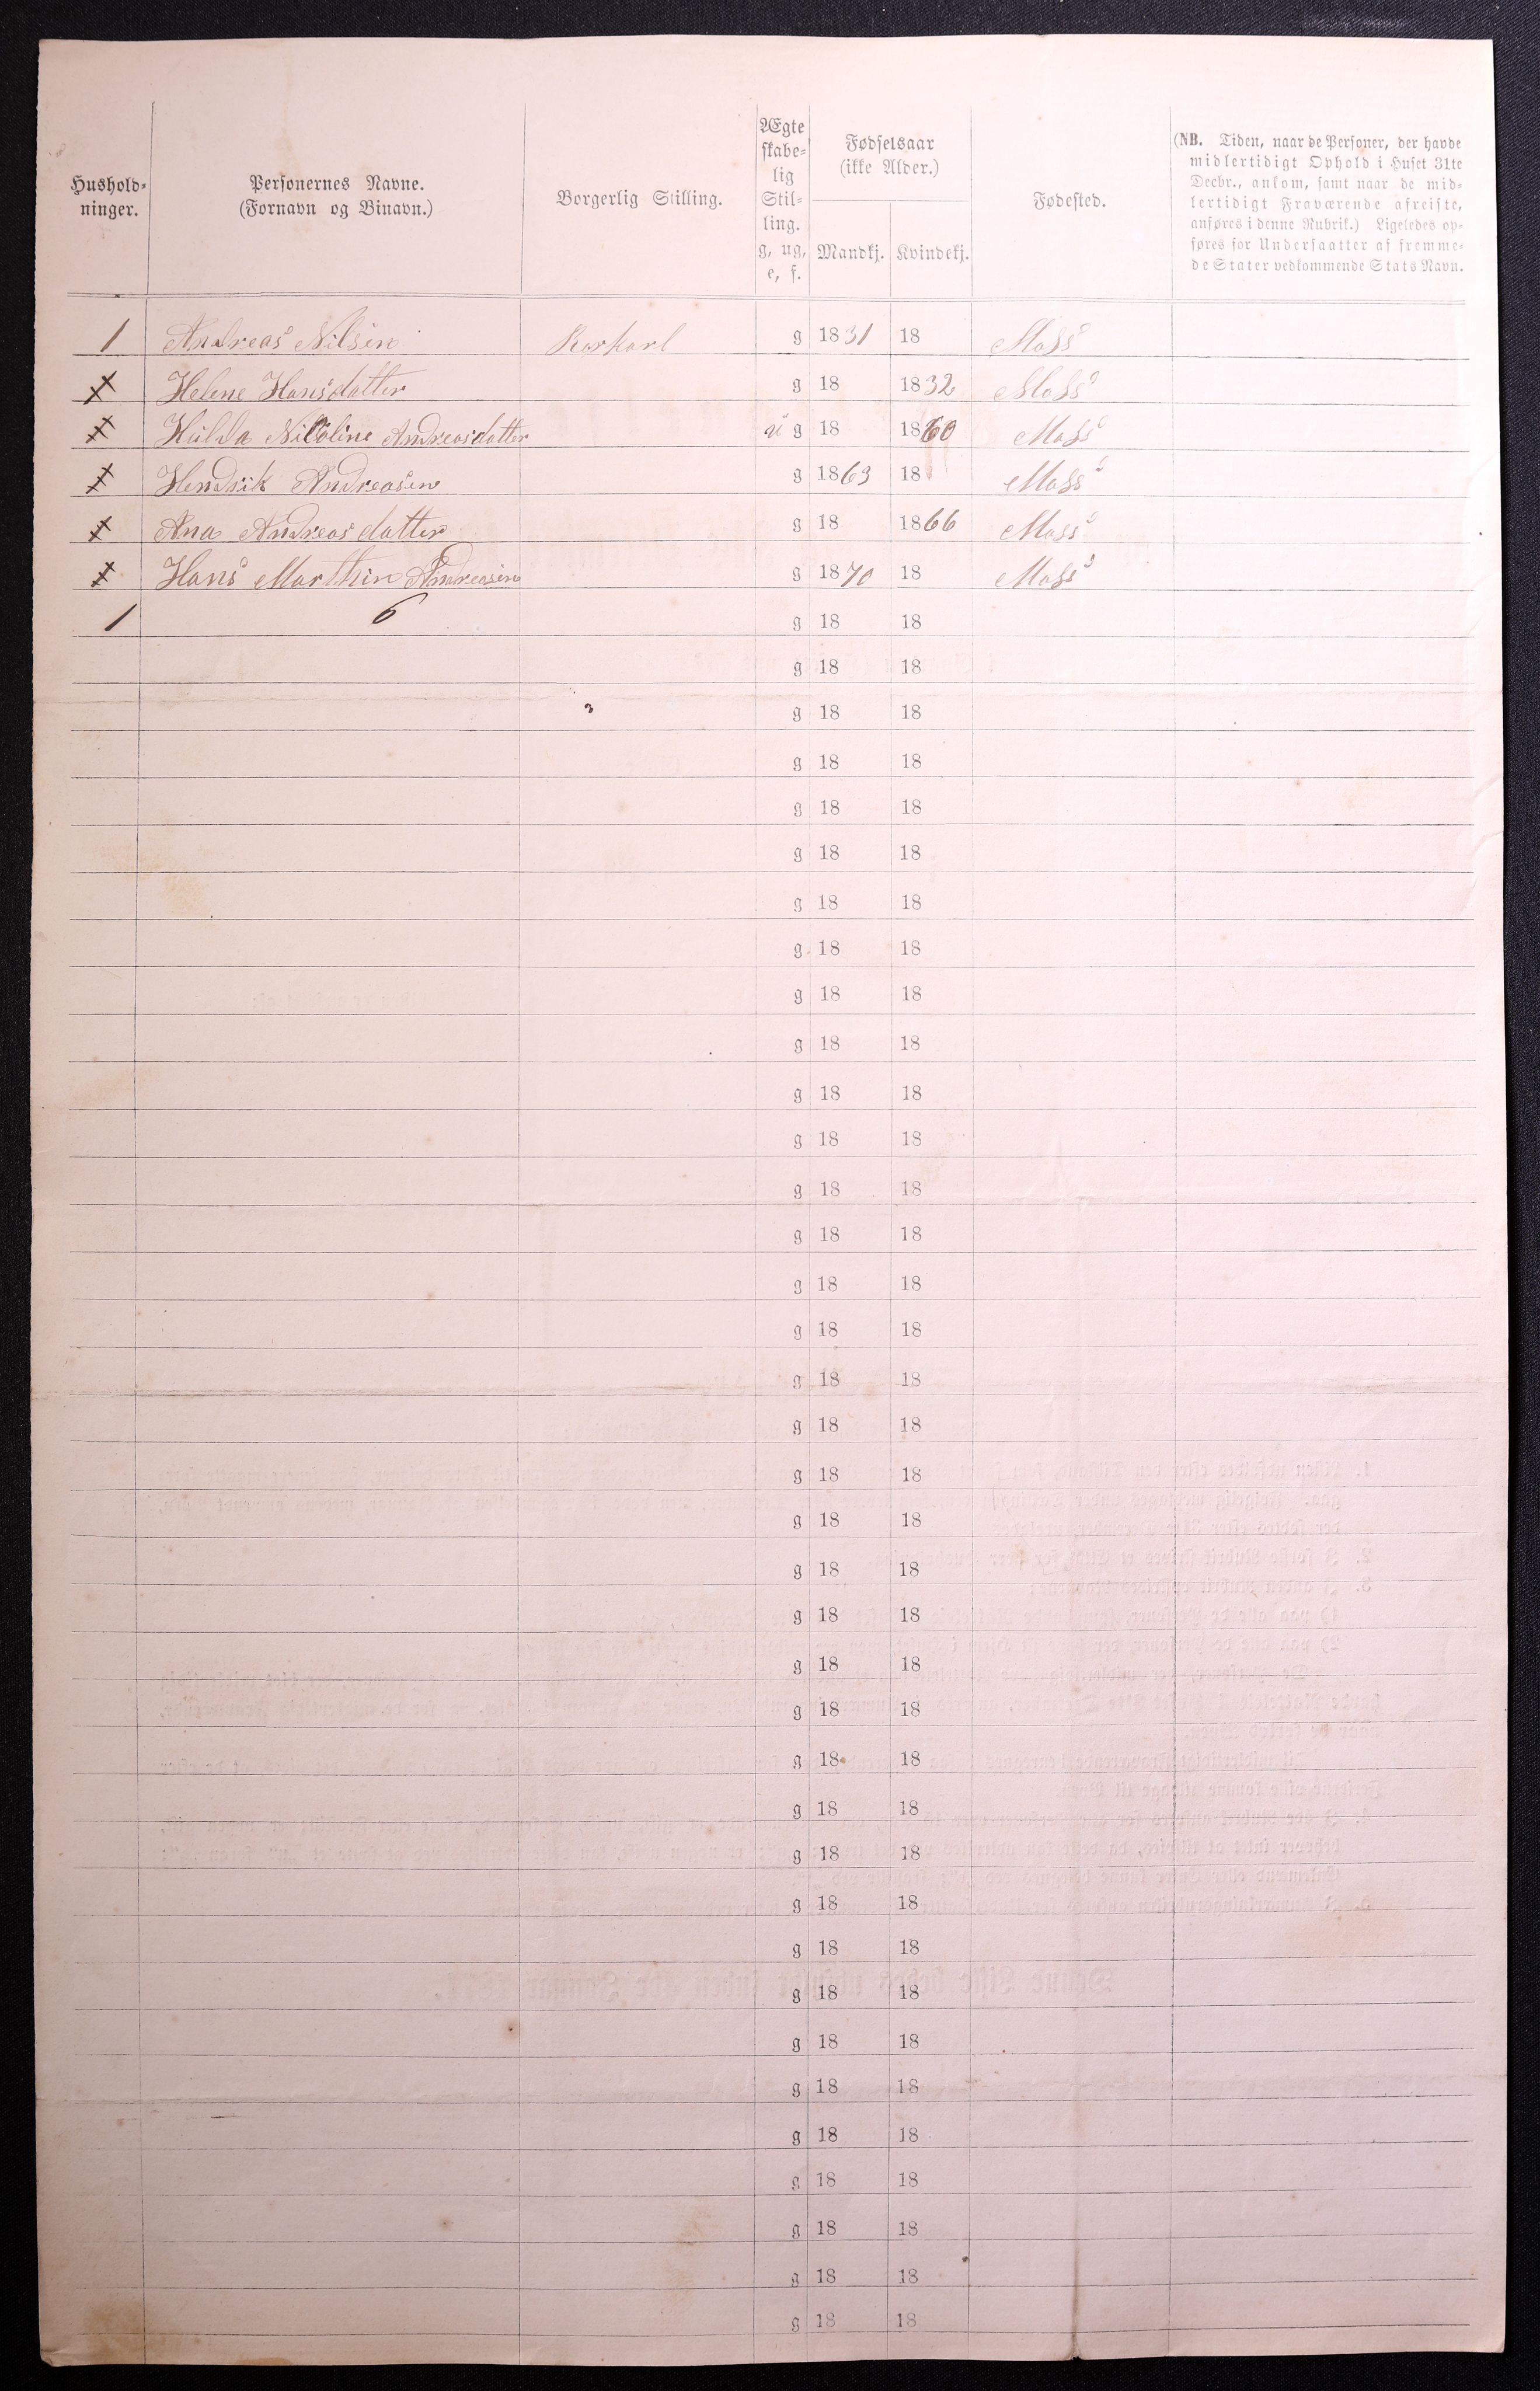 Hushold-
ninger.
Personernes Navne.
(Fornavn og Binavn.)
Borgerlig Stilling.
Ægte
skabe-
lig
Stil-
ling.
g, ug,
e, f.
Fødselsaar
(ikke Alder.)
Mandkj. Kvindekj.
Fødested.
(NB. Tiden, naar de Personer, der havde
midlertidigt Ophold i Huset 31te
Decbr., ankom, samt naar de mid-
lertidigt Fraværende afreiste,
anføres i denne Rubrik.) Ligeledes op-
føres for Undersaatter af fremme-
de Stater vedkommende Stats Navn.
1 Andreas Nilsen g 1831 18 Moss
Helene Hansdatter g 18 1832 Moss
Hulda Nicoline Andreasdatter u g 18 1860 Moss
Hendrik Andreasen g 1863 18 Moss
Ana Andreasdatter g 18 1866 Moss
Hans Marthin Andreasen g 1870 18 Moss
1 6 g 18 18
g 18 18
g 18 18
g 18 18
g 18 18
g 18 18
g 18 18
g 18 18
g 18 18
g 18 18
g 18 18
g 18 18
g 18 18
g 18 18
g 18 18
g 18 18
g 18 18
g 18 18
g 18 18
g 18 18
g 18 18
g 18 18
g 18 18
g 18 18
g 18 18
g 18 18
g 18 18
g 18 18
g 18 18
g 18 18
g 18 18
g 18 18
g 18 18
g 18 18
g 18 18
g 18 18
g 18 18